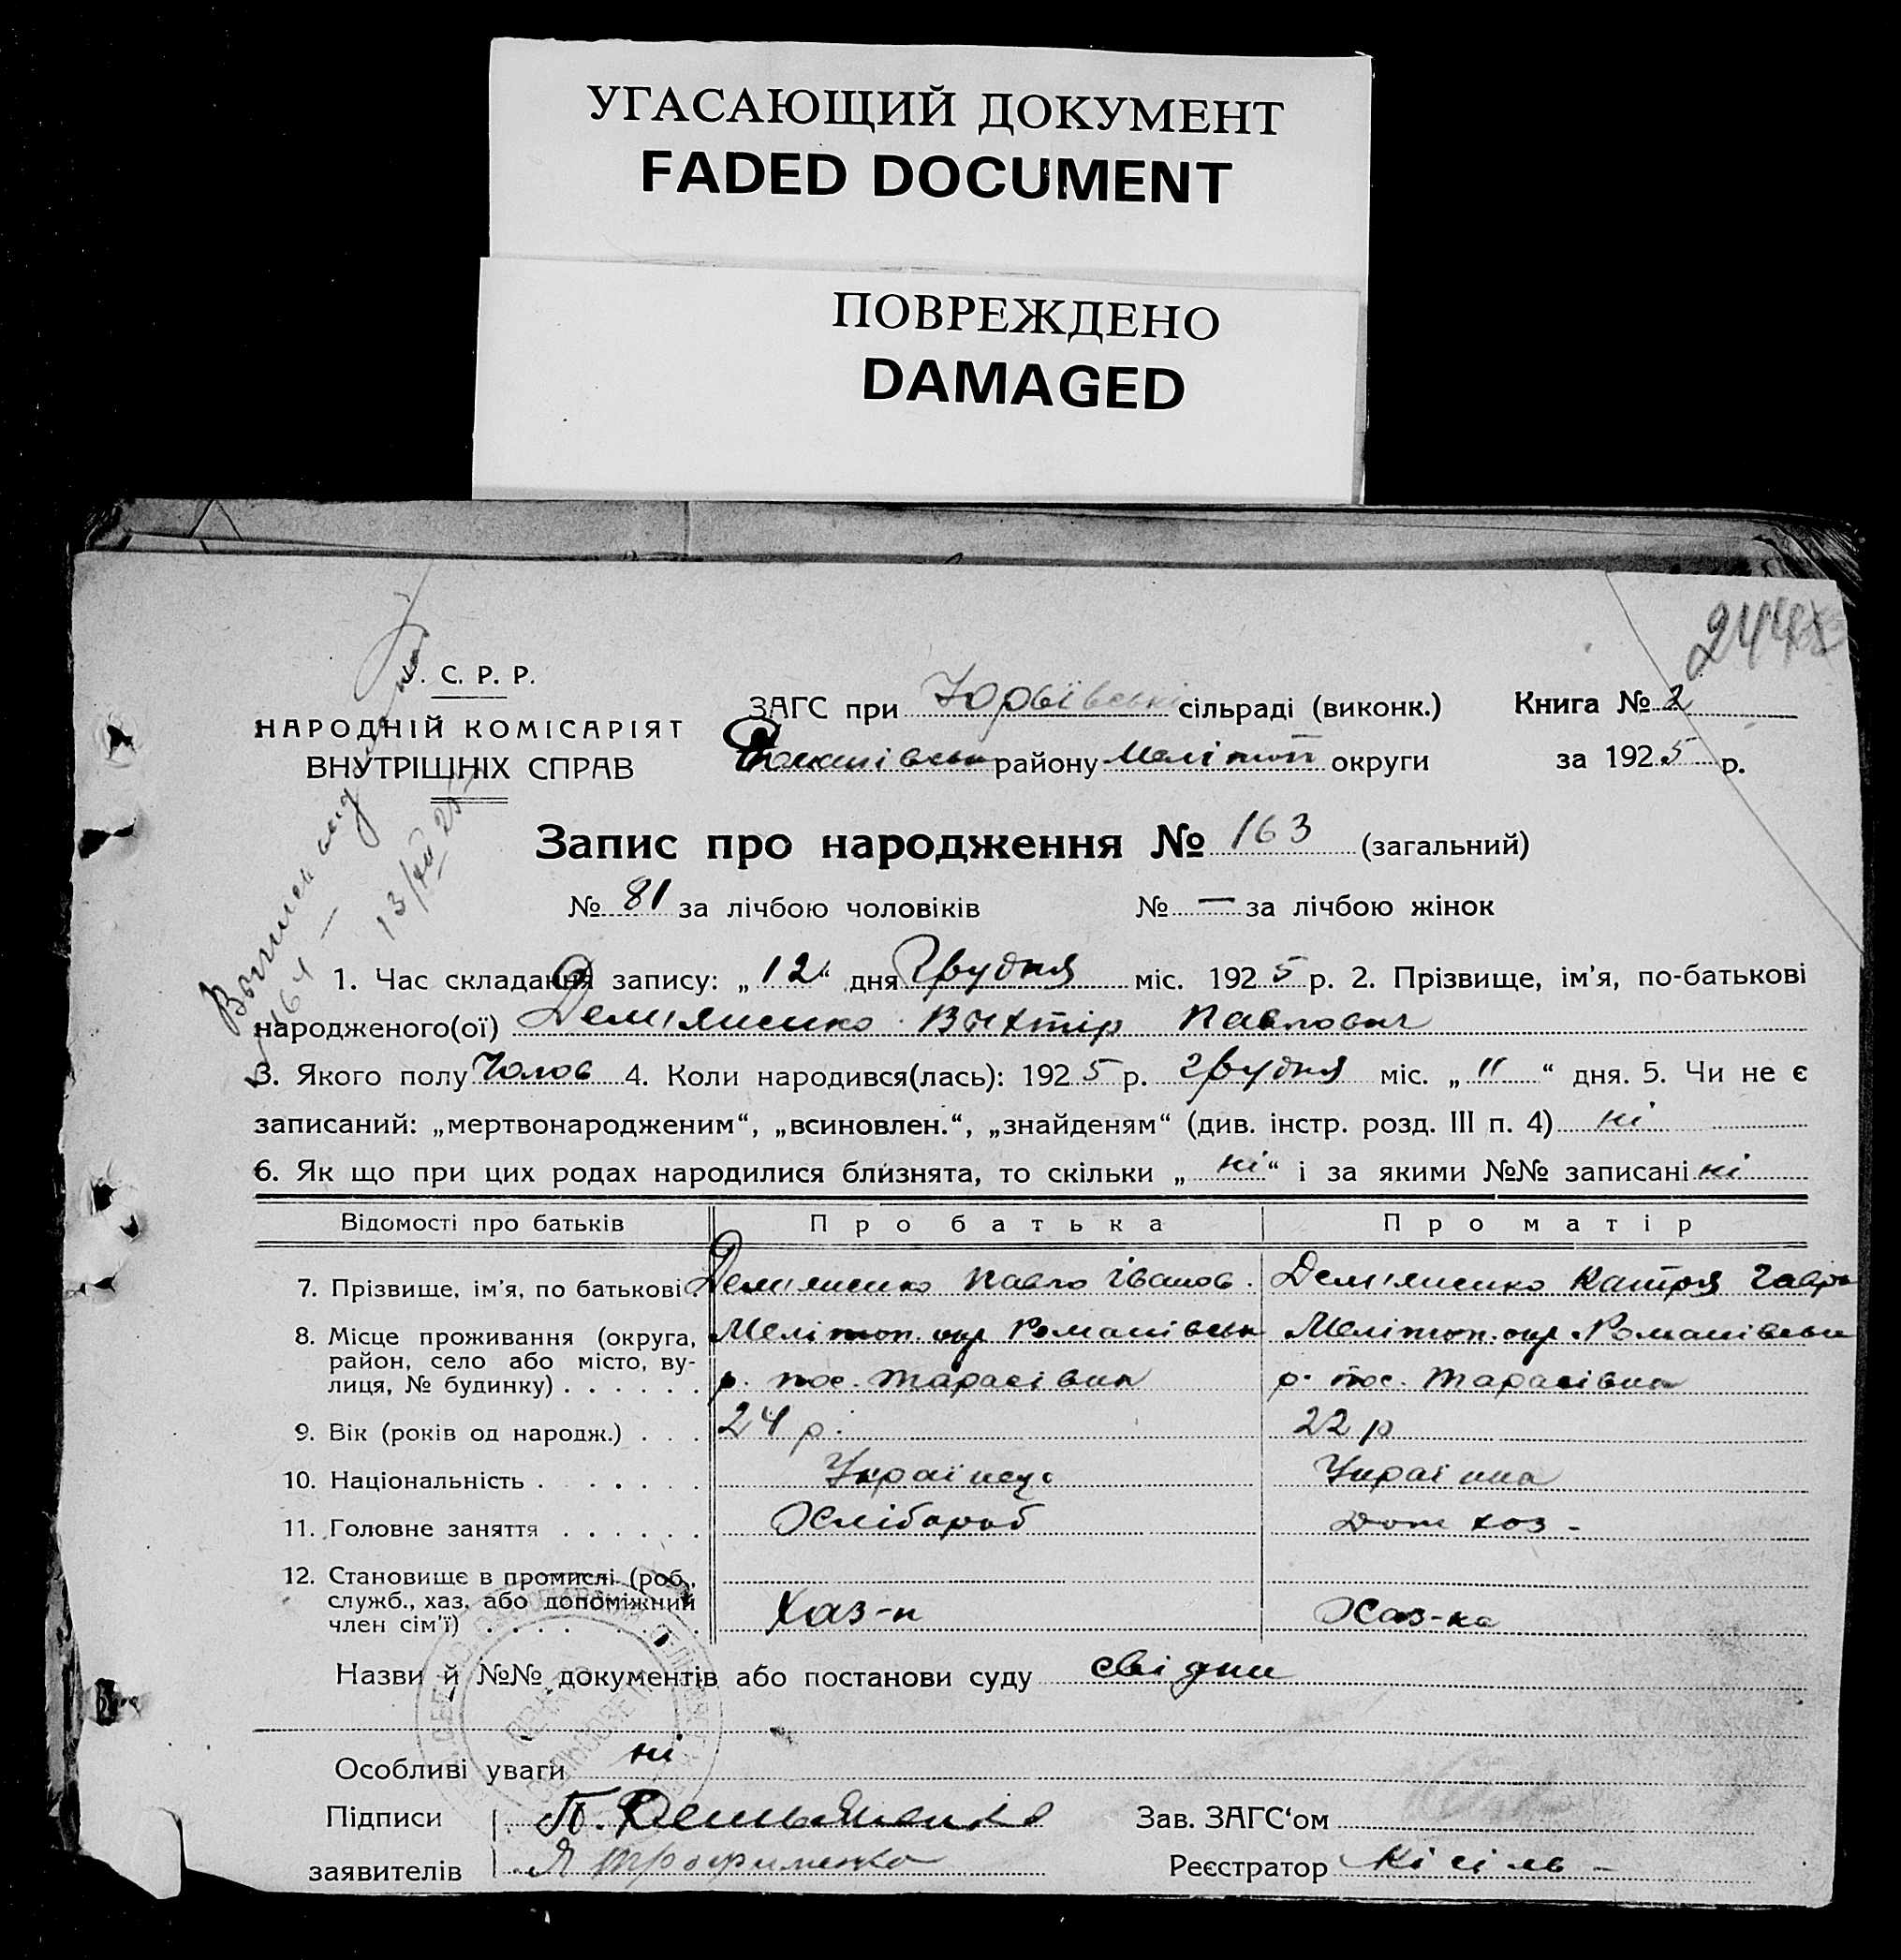 УГАСАЮЩИЙ ДОКУМЕНТ
FADED DOCUMENT
ПОВРЕЖДЕНО
DAMAGED
2448
У. С. Р. Р.
НАРОДНІЙ КОМІСАРІЯТ
ВНУТРІШНІХ СПРАВ
ЗАГС при Юрьївські сільраді (виконк.) Книга № 2
району Мелітоп округи за 1925 р.
13/XII 25
Запис про народження № 163 (загальний)
№ 81 за лічбою чоловіків № — за лічбою жінок
1. Час складання запису: „12“ дня Грудня міс. 1925 р. 2. Прізвище, ім'я, по-батькові
народженого(ої) Демяненко Вихтір Павлович
3. Якого полу Чолов 4. Коли народився(лась): 1925 р. грудня міс. „11“ дня. 5. Чи не є
записаний: „мертвонародженим“, „всиновлен.“, „знайденям“ (див. інстр. розд. III п. 4) ні
6. Як що при цих родах народилися близнята, то скільки „ні“ і за якими №№ записані ні
Відомості про батьків Про батька Про матір
7. Прізвище, ім'я, по батькові. Демяненко Павло Іванов. Демяненко Катря Гавр
8. Місце проживання (округа, Мелітоп. окр Романівськ Меліноп. окр. Романівськ
район, село або місто, ву-
лиця, № будинку) . . . . . . р. пос. Тарасівка р. пос. Тарасівка
9. Вік (років од народж.) . . . 24 р. 22 р
10. Національність . . . . . Українець Українка
11. Головне заняття . . . . . . Хлібороб Дом хоз-
12. Становище в промислі (роб.,
служб., хаз. або допоміжний
член сім'ї) . . . . Хаз-н Хаз-ка
Назви й №№ документів або постанови суду свідки
Особливі уваги ні
Підписи П. Демьяненко Зав. ЗАГС'ом
заявителів Я Трофименко Реєстратор Кісіль -